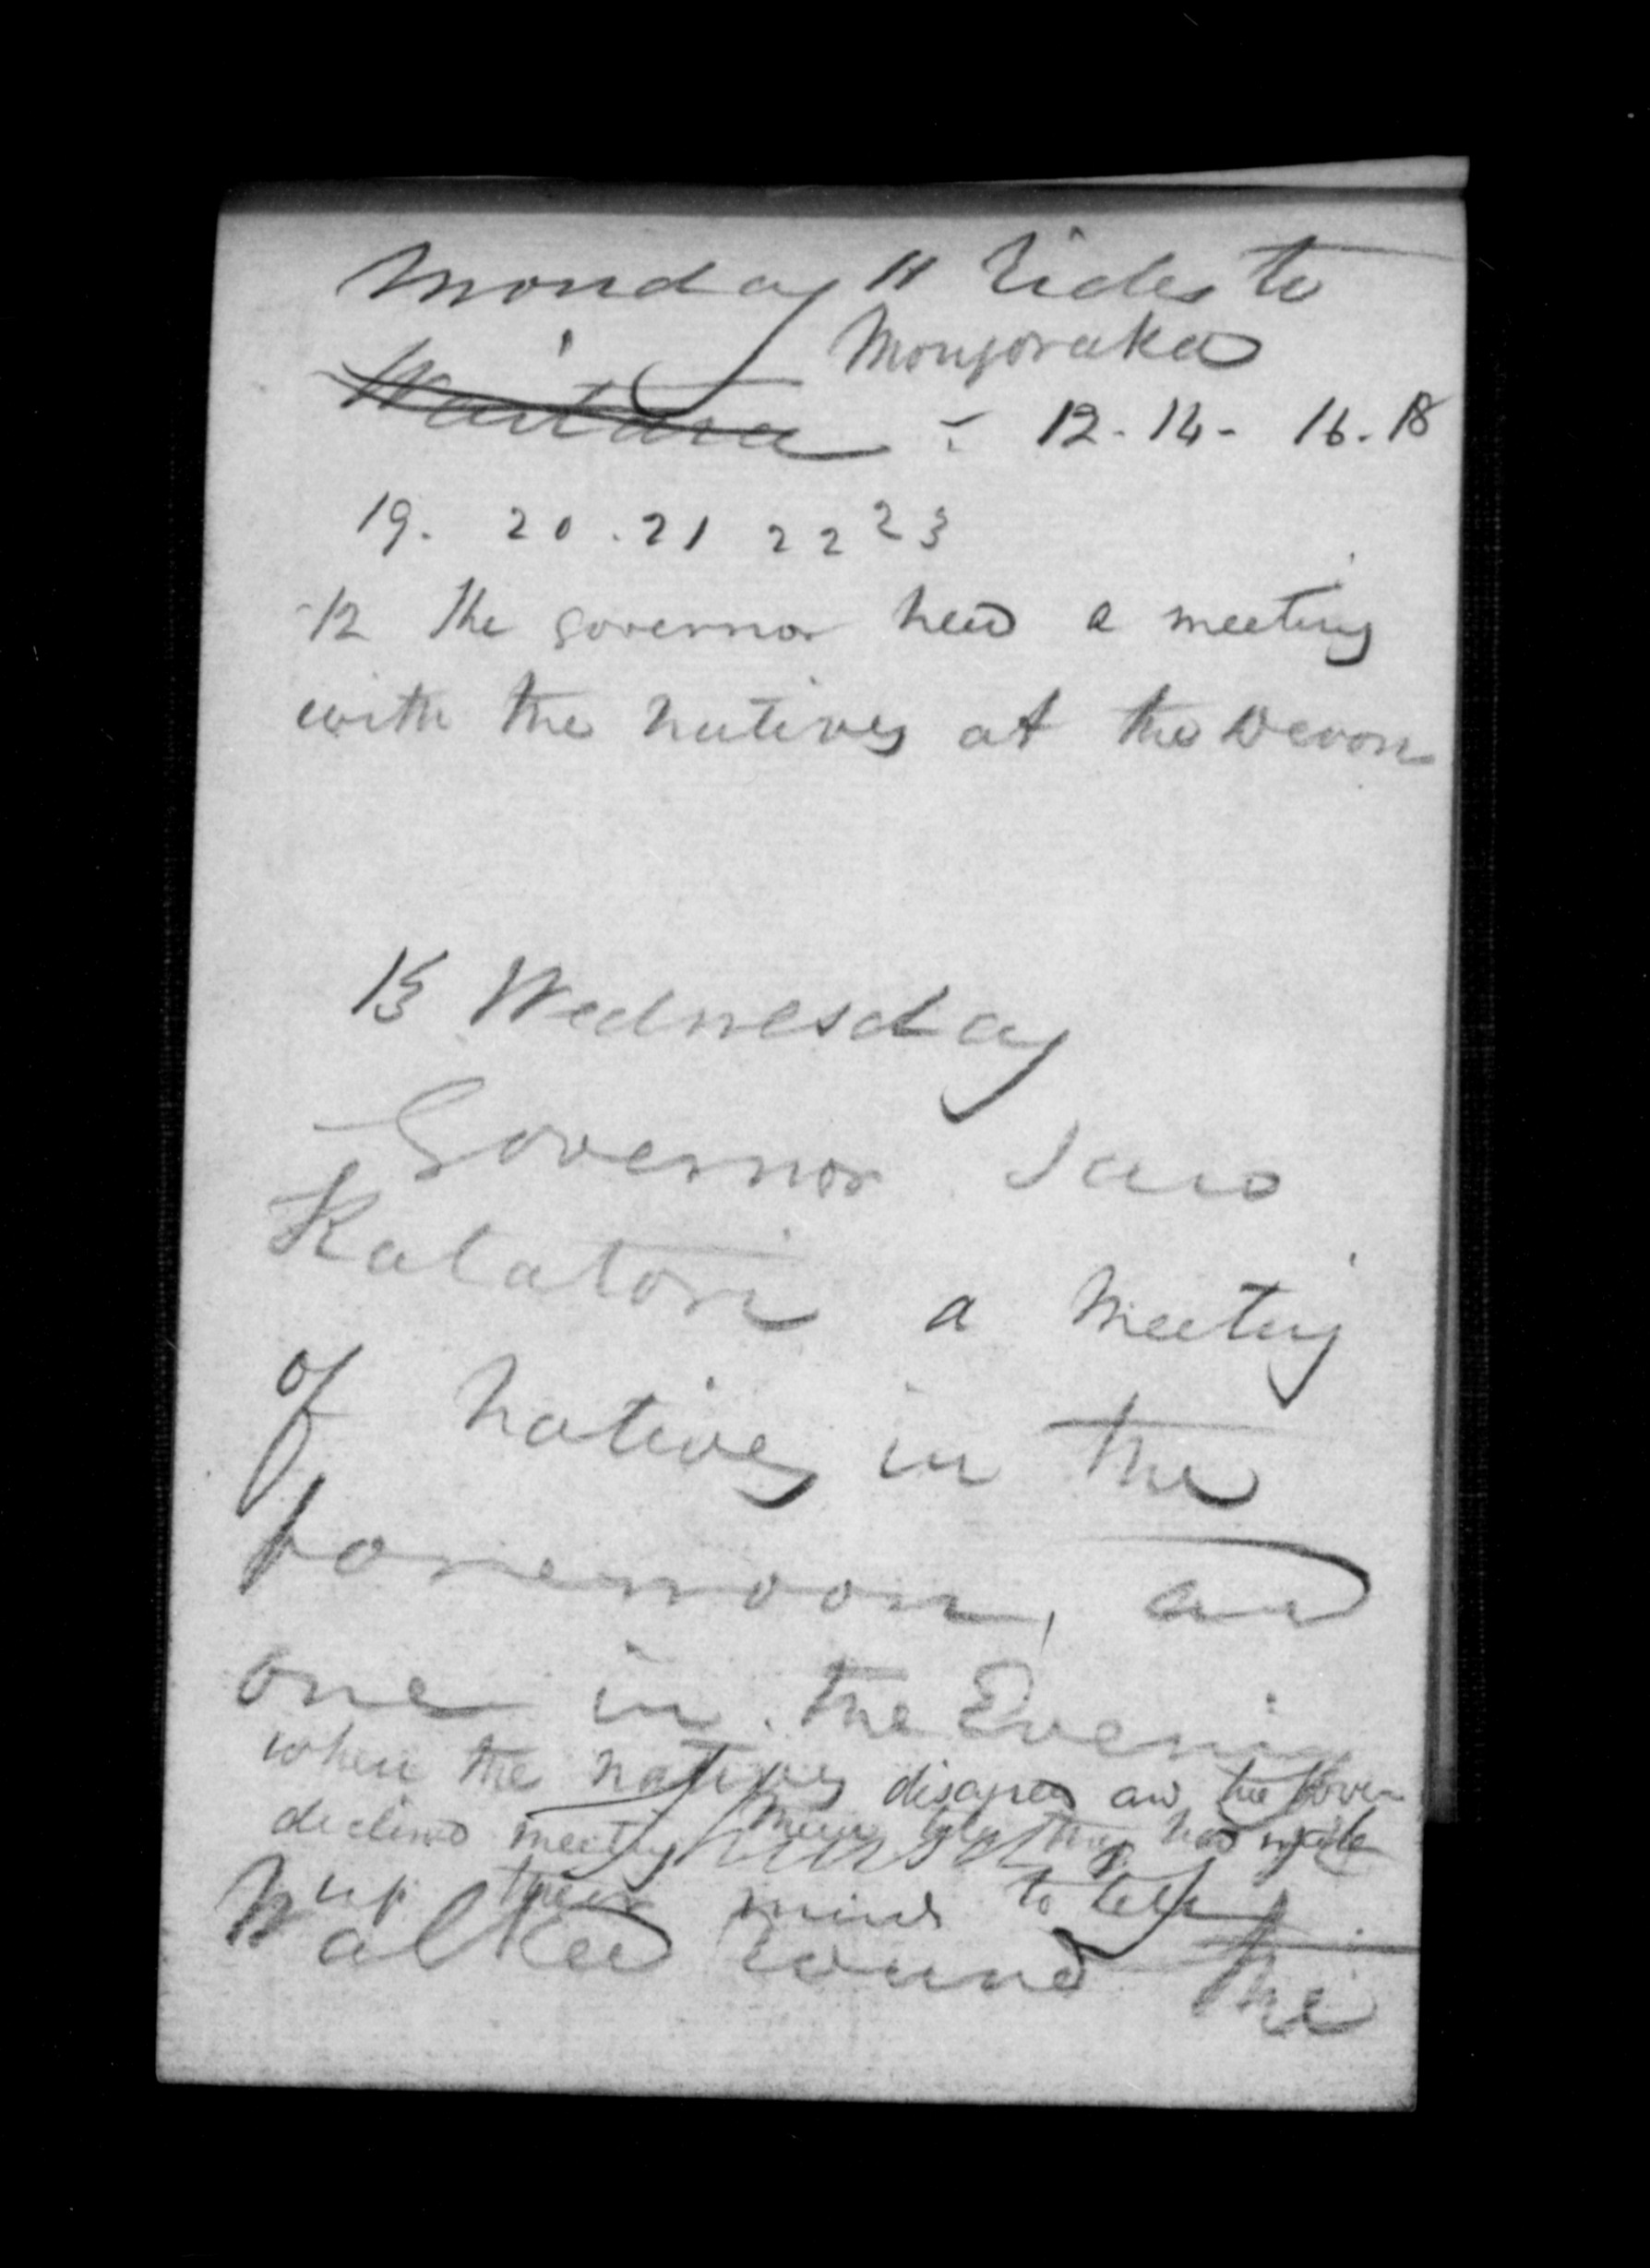 Monday 11 Rides to
Mongoraka
Waitara - 12-14- 16.18
19. 20.21 22 23
12 The governor held a meeting
with the natives at the Devon
13 Wednesday
Governor saw
Katatori a meeting
of natives in the
forenoon, and
one in the Evening
when the natives disagreed and the Gover
declined meeting them they had made
up their minds to
Walked round the